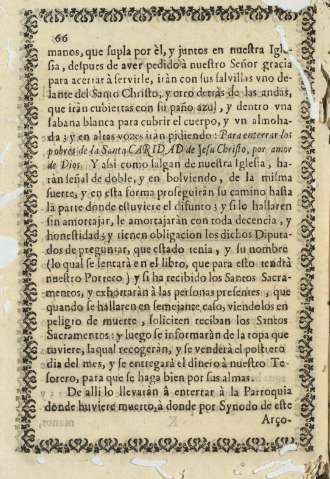 66
manos, que supla por èl, y juntos en nuestra Igle-
sia, despues de aver pedido à nuestro Señor gracia
para acertar à servirle, iràn con sus salvillas vno de-
lante del Santo Christo, y otro detràs de las andas,
que iràn cubiertas con su paño azul, y dentro vna
sabana blanca para cubrir el cuerpo, y vn almoha-
da; y en altas vozes iràn pidiendo: Para enterrar los
pobres de la Santa CARIDAD de Jesu Christo, por amor
de Dios. Y assi como salgan de nuestra Iglesia, ha-
ràn señal de doble, y en bolviendo, de la misma
suerte, y en esta forma proseguiràn su camino hasta
la parte donde estuviere el difunto; y si lo hallaren
sin amortajar, le amortajaràn con toda decencia, y
honestidad; y tienen obligacion los dichos Diputa-
dos de preguntar, que estado tenia, y su nombre
(lo qual se sentarà en el libro, que para esto tendrà
nuestro Portero) y si ha recibido los Santos Sacra-
mentos, y exhortaràn à las personas presentes, que
quando se hallaren en semejante caso, viendolos en
peligro de muerte, soliciten reciban los Santos
Sacramentos: y luego se informaràn de la ropa que
tuviere, la qual recogeràn, y se venderà el postrero
dia del mes, y se entregarà el dinero à nuestro Te-
sorero, para que se haga bien por sus almas.
De alli lo llevaràn à enterrar à la Parroquia
donde huviere muerto, à donde por Synodo de este
Arço-